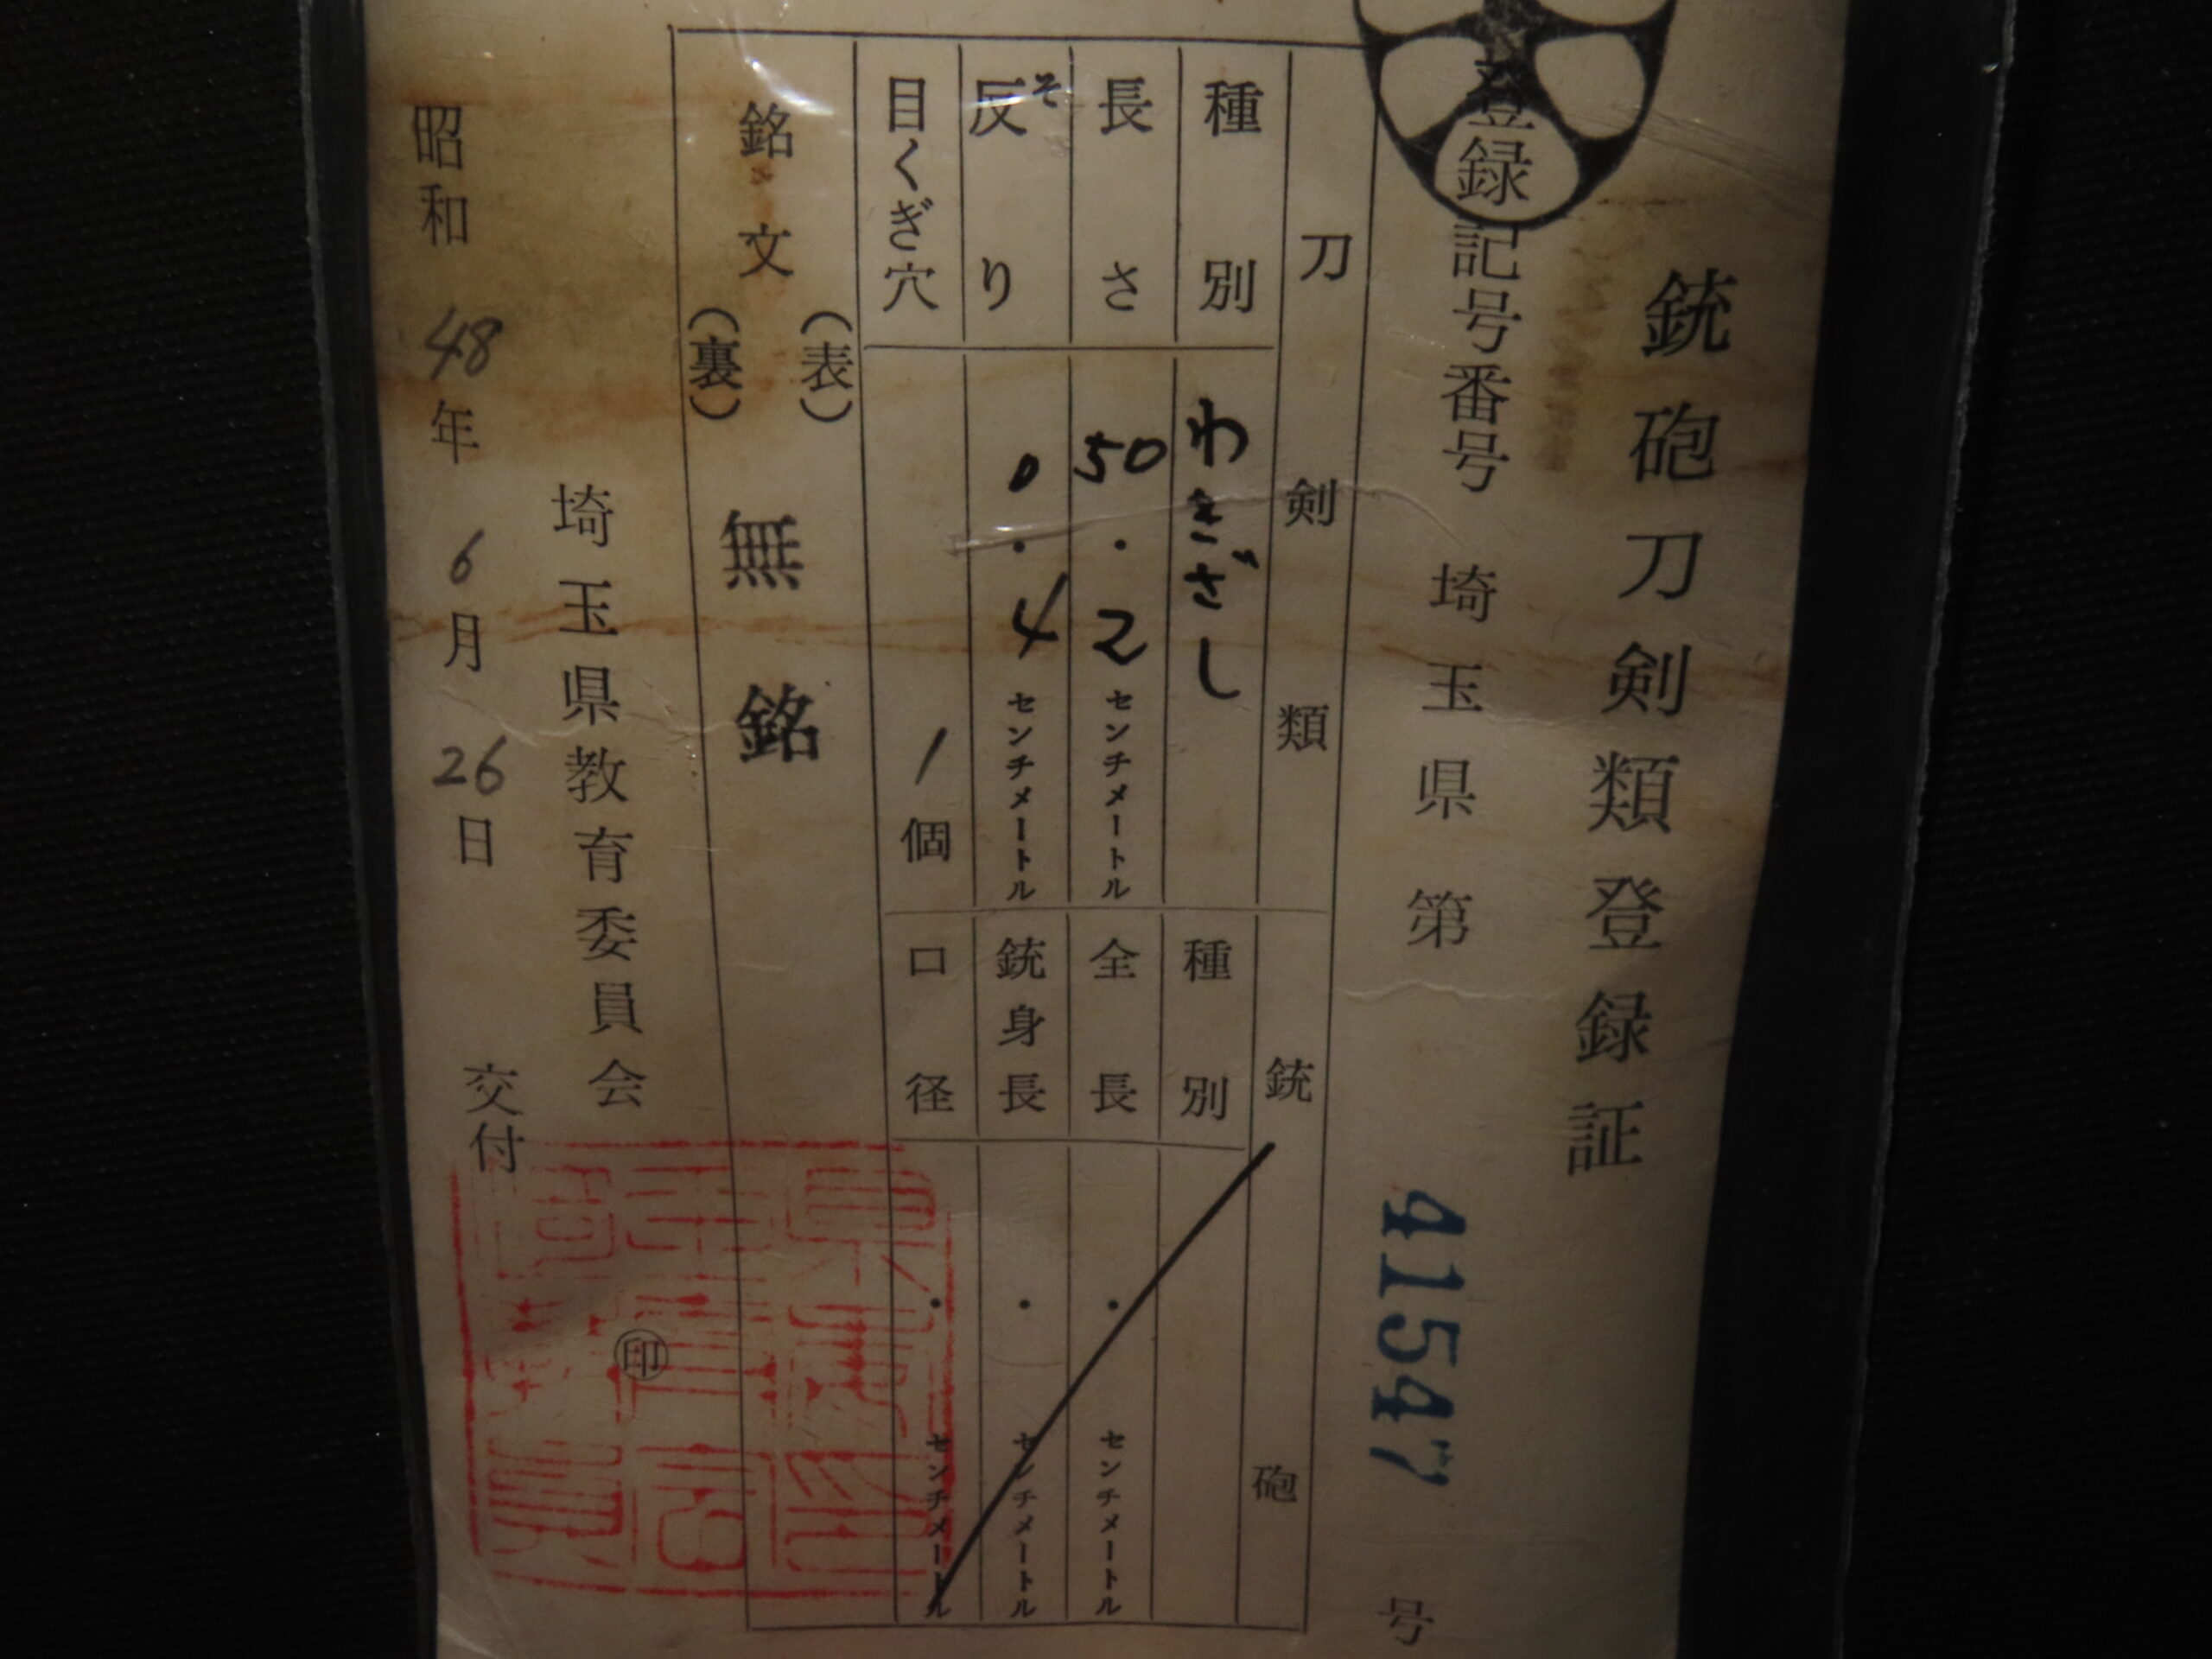 銃砲刀剣類登録証
登録記号番号 埼玉県 第 41547 号
刀剣類
種別 わきざし
長さ 50.2 センチメートル
反り そ 0.4 センチメートル
目くぎ穴 1 個
銘文 (表) (裏) 無銘
銃砲
種別
全長 . センチメートル
銃身長 . センチメートル
口径 . センチメートル
埼玉県教育委員会 印
昭和 48 年 6 月 26 日 交付